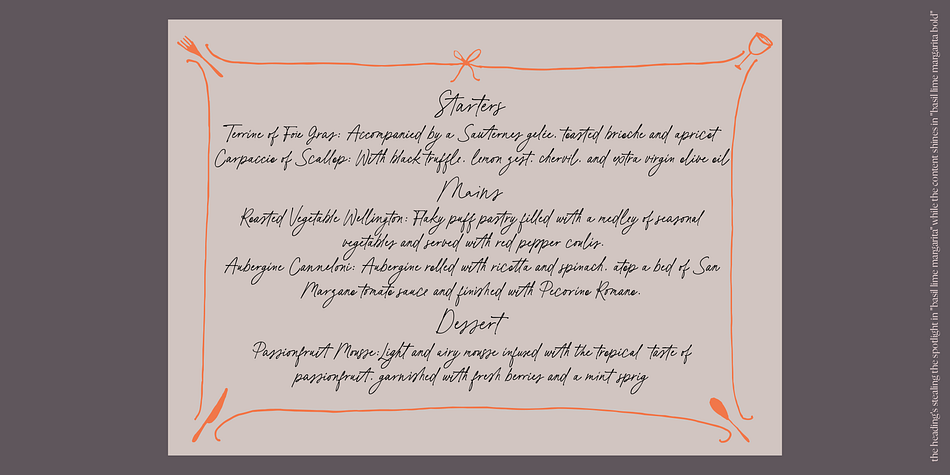 Starters
Terrine of Foie Gras: Accompanied by a Sauternes gelée, toasted brioche and apricot
Carpaccio of Scallop: With black truffle, lemon zest, chervil, and extra virgin olive oil
Mains
Roasted Vegetable Wellington: Flaky puff pastry filled with a medley of seasonal
vegetables and served with red pepper coulis.
Aubergine Canneloni: Aubergine rolled with ricotta and spinach, atop a bed of San
Marzano tomato sauce and finished with Pecorino Romano.
Dessert
Passionfruit Mousse:Light and airy mousse infused with the tropical taste of
passionfruit, garnished with fresh berries and a mint sprig
the heading's stealing the spotlight in "basil lime margarita" while the content shines in "basil lime margarita bold"